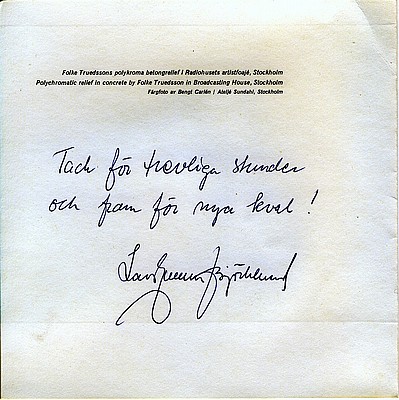 Folke Truedssons polykroma betongrelief i Radiohusets artistfoajé, Stockholm
Polychromatic relief in concrete by Folke Truedsson in Broadcasting House, Stockholm
Färgfoto av Bengt Carlén / Ateljé Sundahl, Stockholm
Tack för trevliga stunder
och fram för nya kval!
Lars Gunnar Björklund